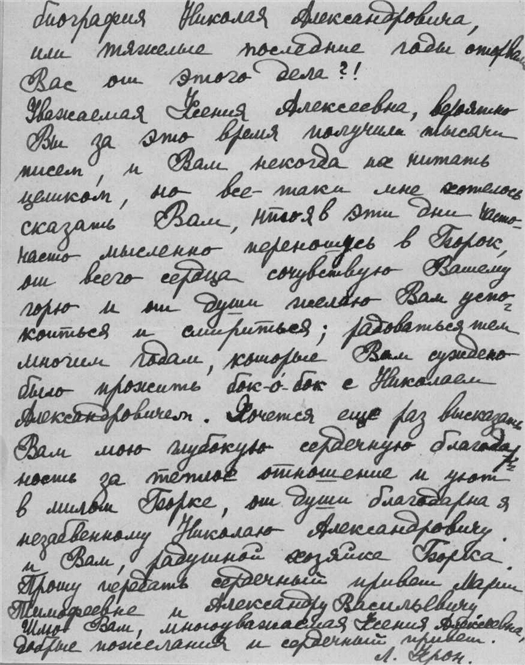 биография Николая Александровича,
или тяжелые последние годы оторвали
Вас от этого дела?!
Уважаемая Ксения Алексеевна, вероятно
Вы за это время получили тысячи
писем, и Вам некогда их читать
целиком, но все-таки мне хотелось
сказать Вам, что я в эти дни часто-
часто мысленно переношусь в Борок,
от всего сердца сочувствую Вашему
горю и от души желаю Вам успо-
коиться и смириться; радоваться тем
многим годам, которые Вам суждено
было прожить бок-о-бок с Николаем
Александровичем. Хочется еще раз высказать
Вам мою глубокую сердечную благодар-
ность за теплое отношение и уют
в милом Борке, от души благодарна я
незабвенному Николаю Александровичу
и Вам, радушной хозяйке Борка.
Прошу передать сердечный привет Марии
Тимофеевне и Александру Васильевичу.
Шлю Вам, многоуважаемая Ксения Алексеевна,
добрые пожелания и сердечный привет.
Л. Крон.